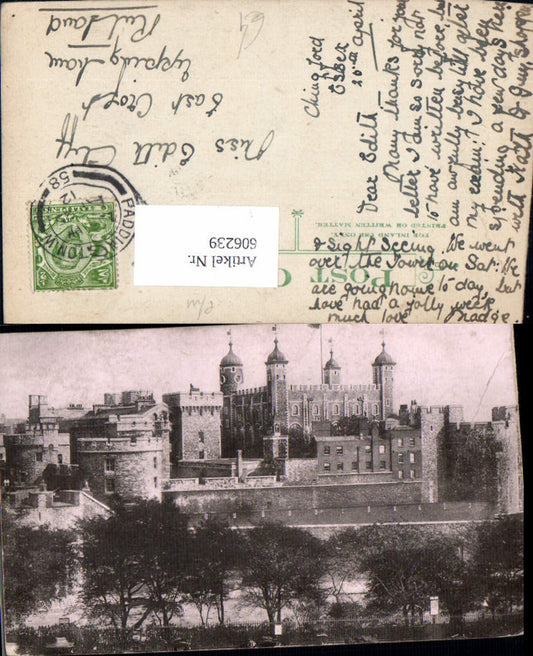 Chingford
Essex
20th April
Dear Edith
Many thanks for your
letter I am so sorry not
to have written before but
am awfully busy till after
my exam. I have been
spending a few days here
with Kath & Guy, shopping
& Sight Seeing. We went
over the Tower on Sat. We
are going home to day, but
have had a jolly week
much love Madge
Miss Edith Cliff
East Croft
Uppingham
Rutland
POST C
FOR INLAND USE ONLY
PRINTED OR WRITTEN MATTER.
PADDINGTON W
58
12
Artikel Nr.
606239